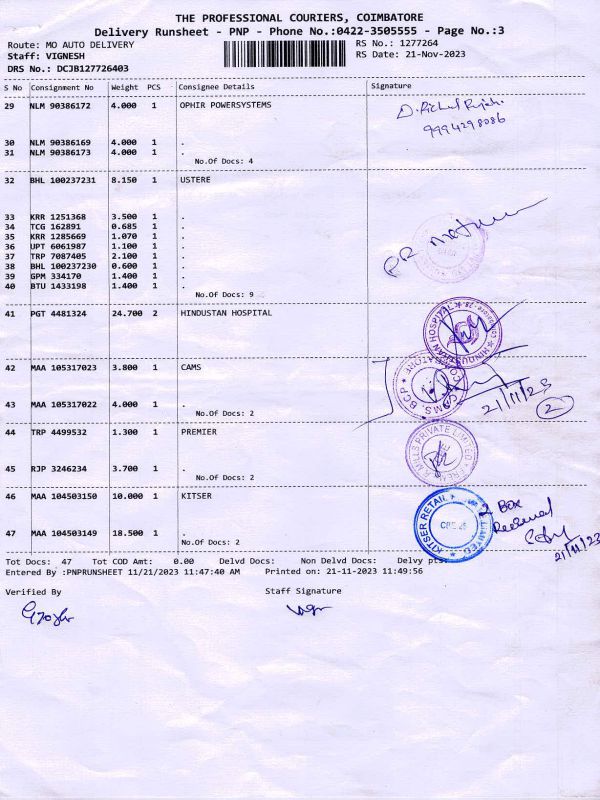 THE PROFESSIONAL COURIERS, COIMBATORE
Delivery Runsheet - PNP - Phone No.:0422-3505555 - Page No.:3
Route: MO AUTO DELIVERY RS No.: 1277264
Staff: VIGNESH RS Date: 21-Nov-2023
DRS No.: DCJB127726403
S No Consignment No Weight PCS Consignee Details Signature
29 NLM 90386172 4.000 1 OPHIR POWERSYSTEMS
9994298086
30 NLM 90386169 4.000 1 .
31 NLM 90386173 4.000 1 .
No.Of Docs: 4
32 BHL 100237231 8.150 1 USTERE
33 KRR 1251368 3.500 1 .
34 TCG 162891 0.685 1 .
35 KRR 1285669 1.070 1 .
36 UPT 6061987 1.100 1 .
37 TRP 7087405 2.100 1 .
38 BHL 100237230 0.600 1 .
39 GPM 334170 1.400 1 .
40 BTU 1433198 1.400 1 .
No.Of Docs: 9
41 PGT 4481324 24.700 2 HINDUSTAN HOSPITAL
HINDUSTAN HOSPITAL
42 MAA 105317023 3.800 1 CAMS
CAMS, BCP
43 MAA 105317022 4.000 1 .
21/11/23
2
No.Of Docs: 2
44 TRP 4499532 1.300 1 PREMIER
MILLS PRIVATE LIMITED
45 RJP 3246234 3.700 1 .
No.Of Docs: 2
46 MAA 104503150 10.000 1 KITSER
KITSER RETAIL LIMITED
2 Box
Received
21/11/23
47 MAA 104503149 18.500 1 .
No.Of Docs: 2
Tot Docs: 47 Tot COD Amt: 0.00 Delvd Docs: Non Delvd Docs: Delvy pts:
Entered By :PNPRUNSHEET 11/21/2023 11:47:40 AM Printed on: 21-11-2023 11:49:56
Verified By Staff Signature